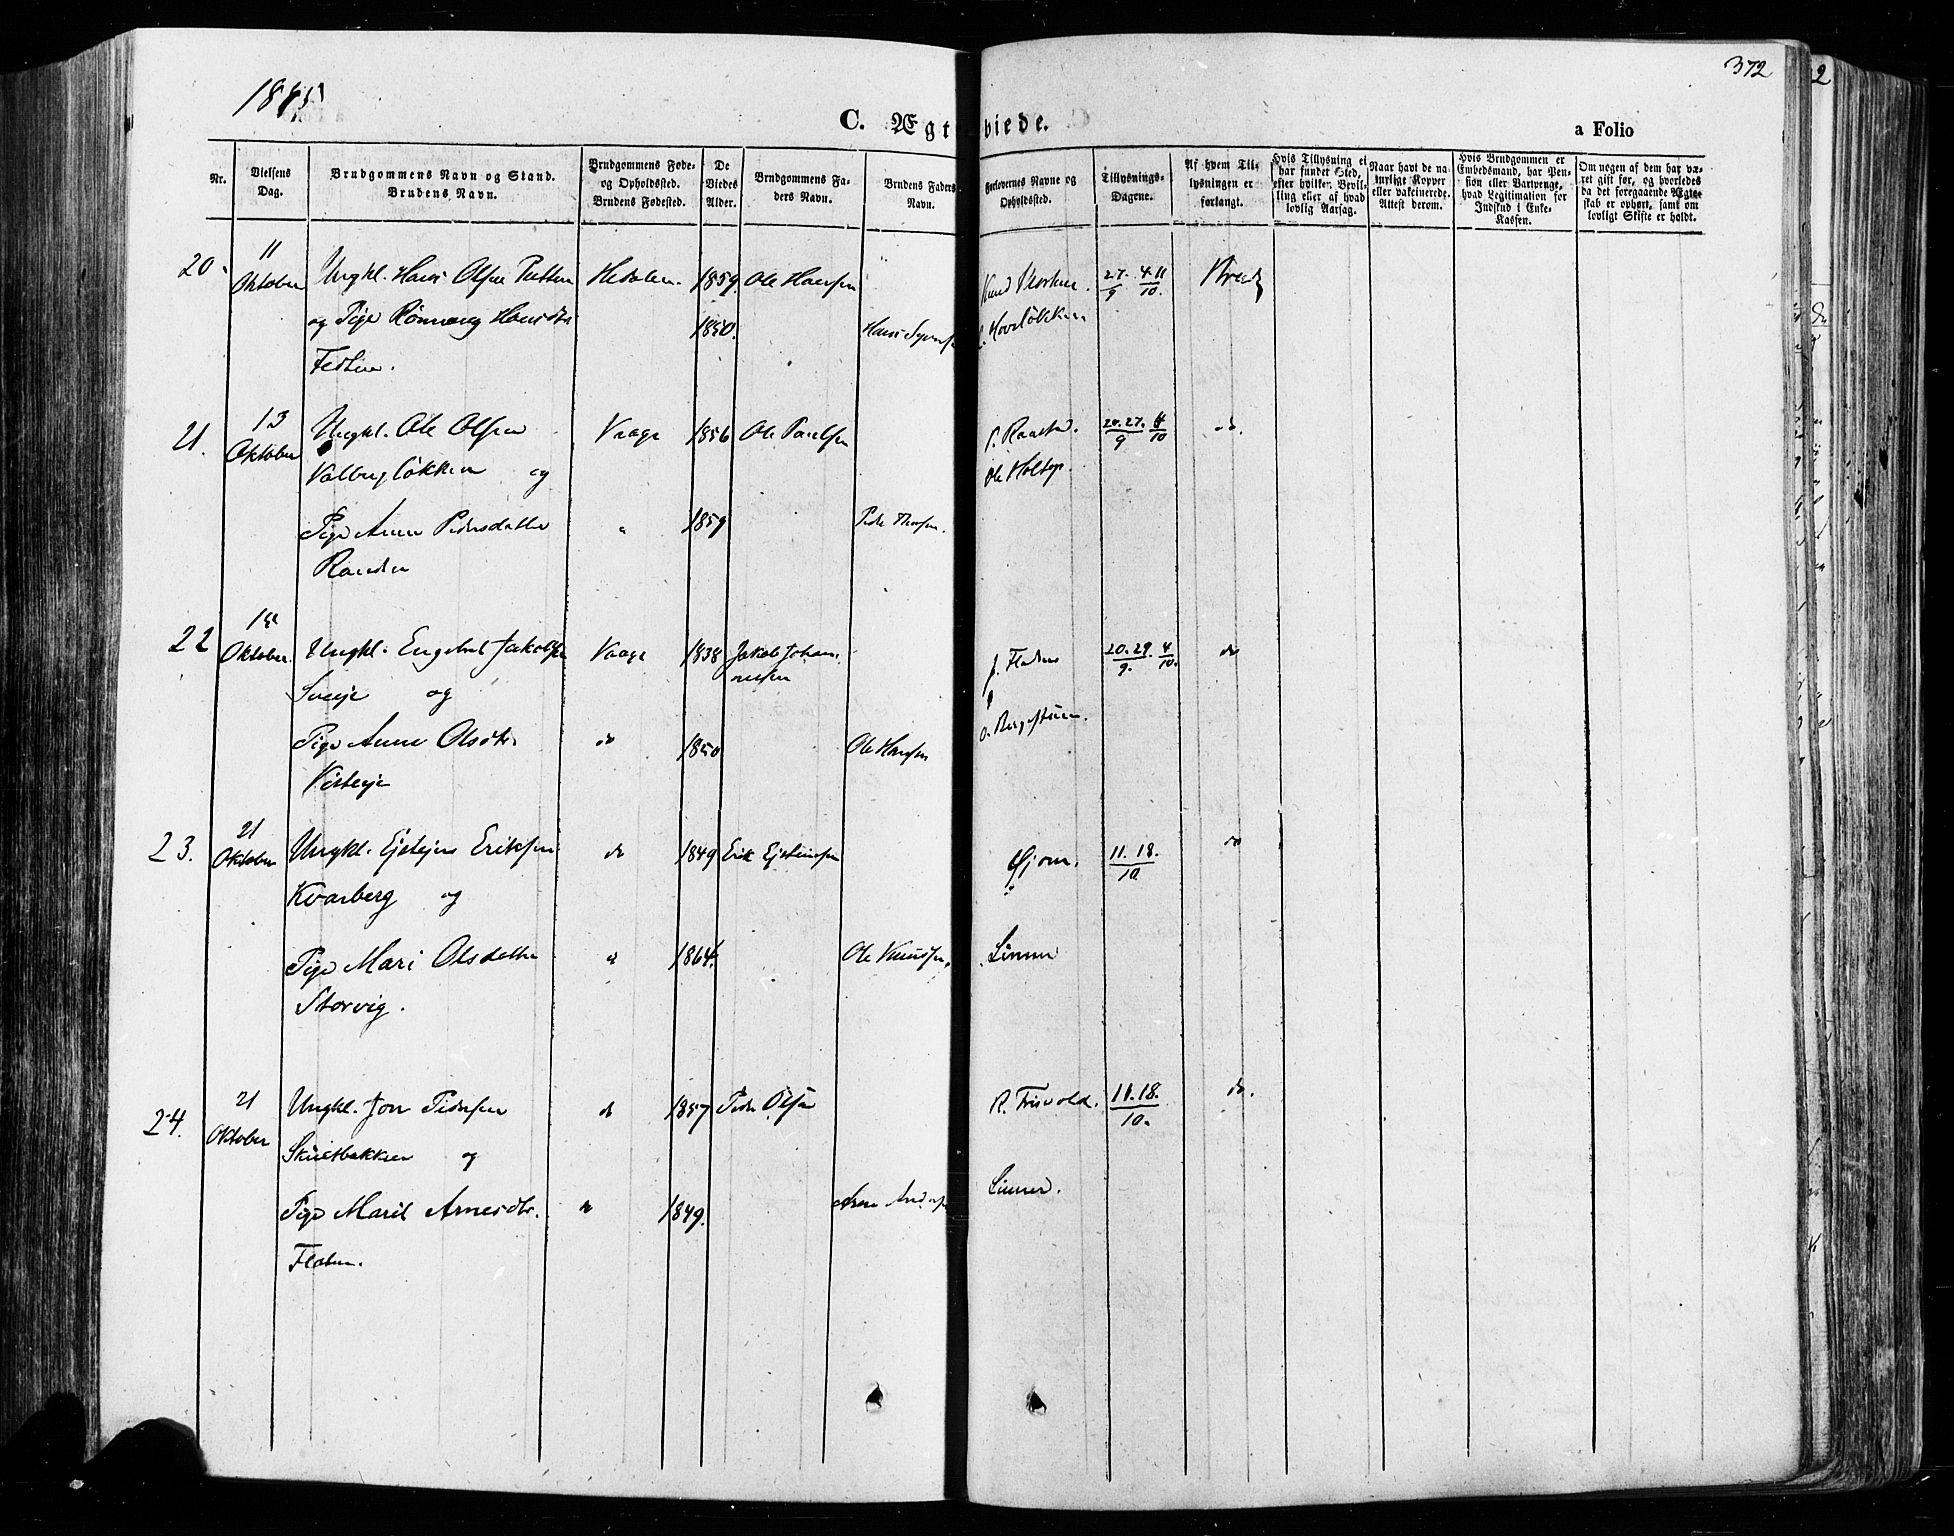 1885
372
C. Ægteviede.
a Folio
Nr.
Vielsens Dag.
Brudgommens Navn og Stand.
Brudens Navn.
Brudgommens Føde- og Opholdssted.
Brudens Fødested.
De Viedes Alder.
Brudgommens Faders Navn.
Brudens Faders Navn.
Forlovernes Navne og Opholdssted.
Tillysnings-Dagene.
Af hvem Tillysningen er forlangt.
Hvis Tillysning ei har fundet Sted, efter hvilken Bevilling eller af hvad lovlig Aarsag.
Naar havt de naturlige Kopper eller vakcinerede. Attest derom.
Hvis Brudgommen er Embedsmand, har Pension eller Vartpenge, hvad Legitimation for Indskud i Enke-Kassen.
Om nogen af dem har været gift før, og hvorledes da det foregaaende Ægteskab er ophørt, samt om lovligt Skifte er holdt.
20. 11 Oktober Ungkl. Hans Olsen 1859. Ole Hansen 27. 4. 11
9 10.
og Pige Rønnaug Hansdtr 1850. Hans
21. 13 Oktober Ungkl. Ole Olsen Vaage 1856 Ole Paulsen 20. 27. 4 do.
9 10
Valbjygløkken og Ole Holtop.
Pige Anne Pedersdatter " 1859
Randen
22 Oktober. Ungkl. Engebret Jakobsen Vaage 1838 Jakob Johannesen 20. 29. 4 do
9. 10.
Sveje og
Pige Anne Olsdtr. do 1850 Ole Hansen
23. 21 Oktober Ungkl. Ejstejn Eriksen do 1849 Erik Ejsteinsen 11. 18. do
10.
Kvarberg og
Pige Mari Olsdatter " 1864. Ole Knudsen.
Storvig.
24. 21 Oktober Ungkl. Jon Pedersen do 1857 Peder Olsen R. Frisvold. 11. 18. do.
10.
Skudsbakken og
Pige Marit Arnesdtr. " 1849. Arne
Flaten.